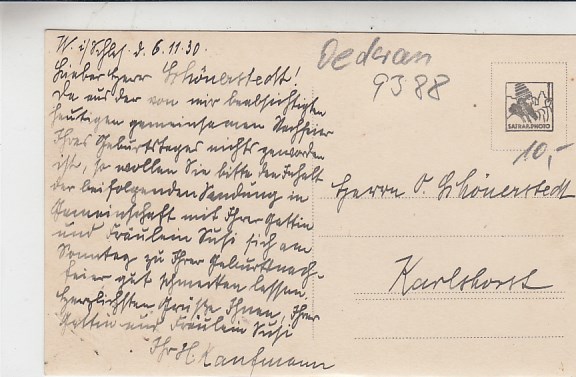 W. i/Schles. d. 6.11.30.
Lieber Herr Schönerstedt!
Da aus der von mir beabsichtigten
heutigen gemeinsamen Nachfeier
Ihres Geburtstages nichts geworden
ist, so wollen Sie bitte den Inhalt
der beifolgenden Sendung in
Gemeinschaft mit Ihrer Gattin
und Fräulein Susi sich am
Sonntag zu Ihrer Geburtsnach-
feier gut schmecken lassen.
Herzlichsten Grüße Ihnen, Ihrer
Gattin und Fräulein Susi
Ihr H. Kaufmann
Oederan
9388
SATRAP-PHOTO
10,-
Herrn O. Schönerstedt
Karlshorst